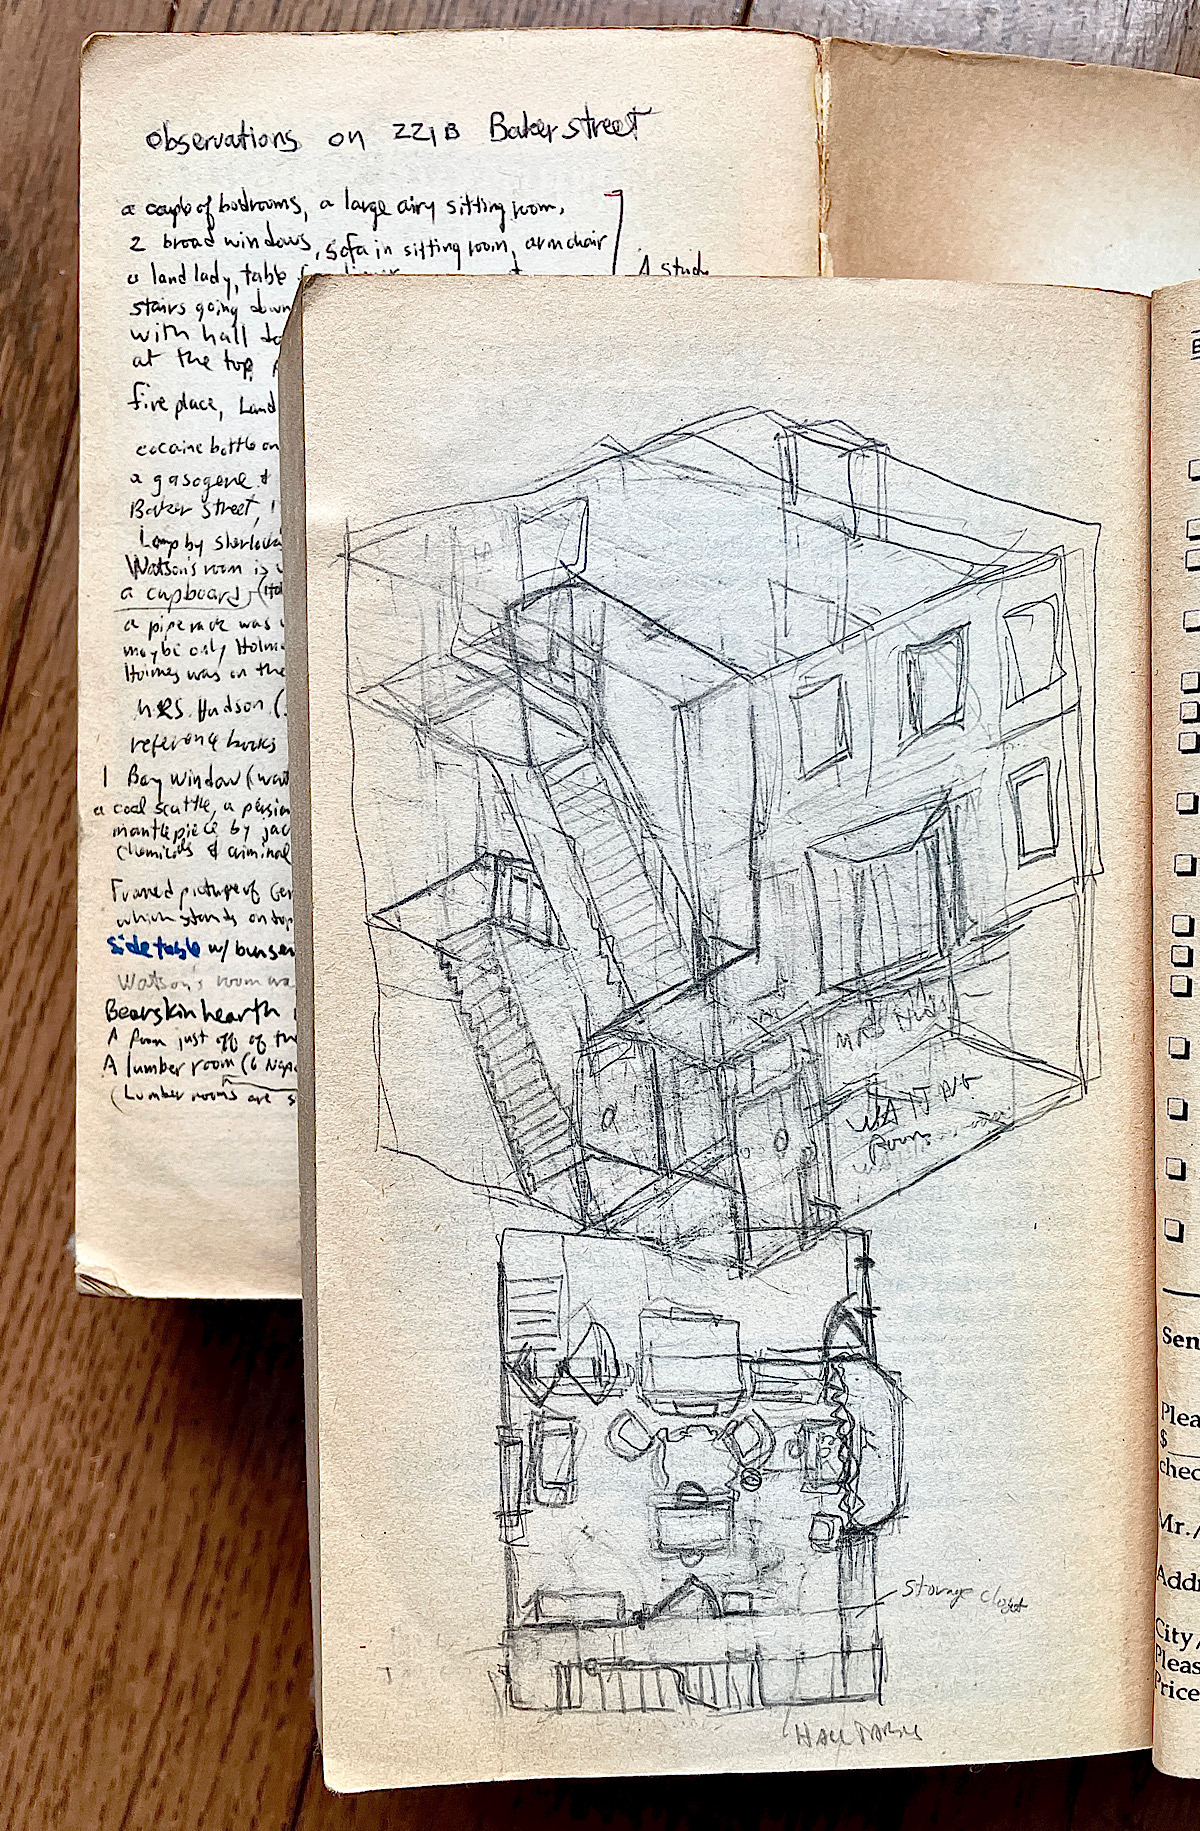 observations on 221B Baker street
a couple of bedrooms, a large airy sitting room,
2 broad windows, sofa in sitting room, armchair
a land lady, table
A study
stairs going down
with hall
at the top,
fire place, Land
cocaine bottle on
a gasogene &
Baker street,
Lamp by
Watson's room is
a cupboard,
a pipe rack was
maybe only
Holmes was on the
MRS. Hudson (
reference books
1 Bay window (
a coal scuttle, a persian
mantlepiece by jac
chemicals & criminal
Framed picture of Gen
which stands on top
Side table w/ bunsen
Watson's room wa
Bearskin hearth
A Room just off of the
A lumber room (6 Nap
(Lumber rooms are s
MRS
WAITING
Room
Storage closet
HALL TABLE
Sen
Plea
$
chec
Mr./
Addr
City/
Pleas
Price